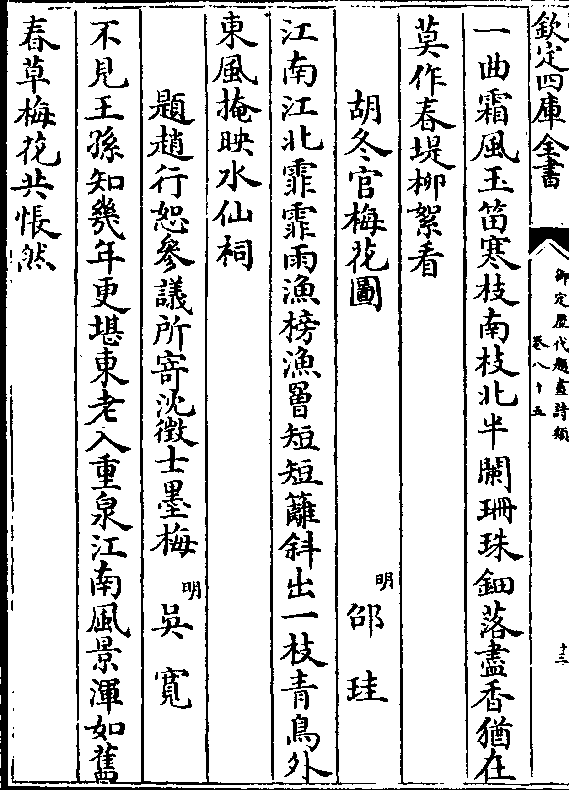 欽定四庫全書
御定歷代題畫詩類
卷八十五
十三
一曲霜風玉笛寒枝南枝北半闌珊珠鈿落盡香猶在
莫作春堤柳絮看
胡冬官梅花圖
明 邵珪
江南江北霏霏雨漁榜漁罾短短籬斜出一枝青鳥外
東風掩映水仙祠
題趙行恕參議所寄沈徵士墨梅
明 吳寬
不見王孫知幾年更堪東老入重泉江南風景渾如舊
春草梅花共悵然